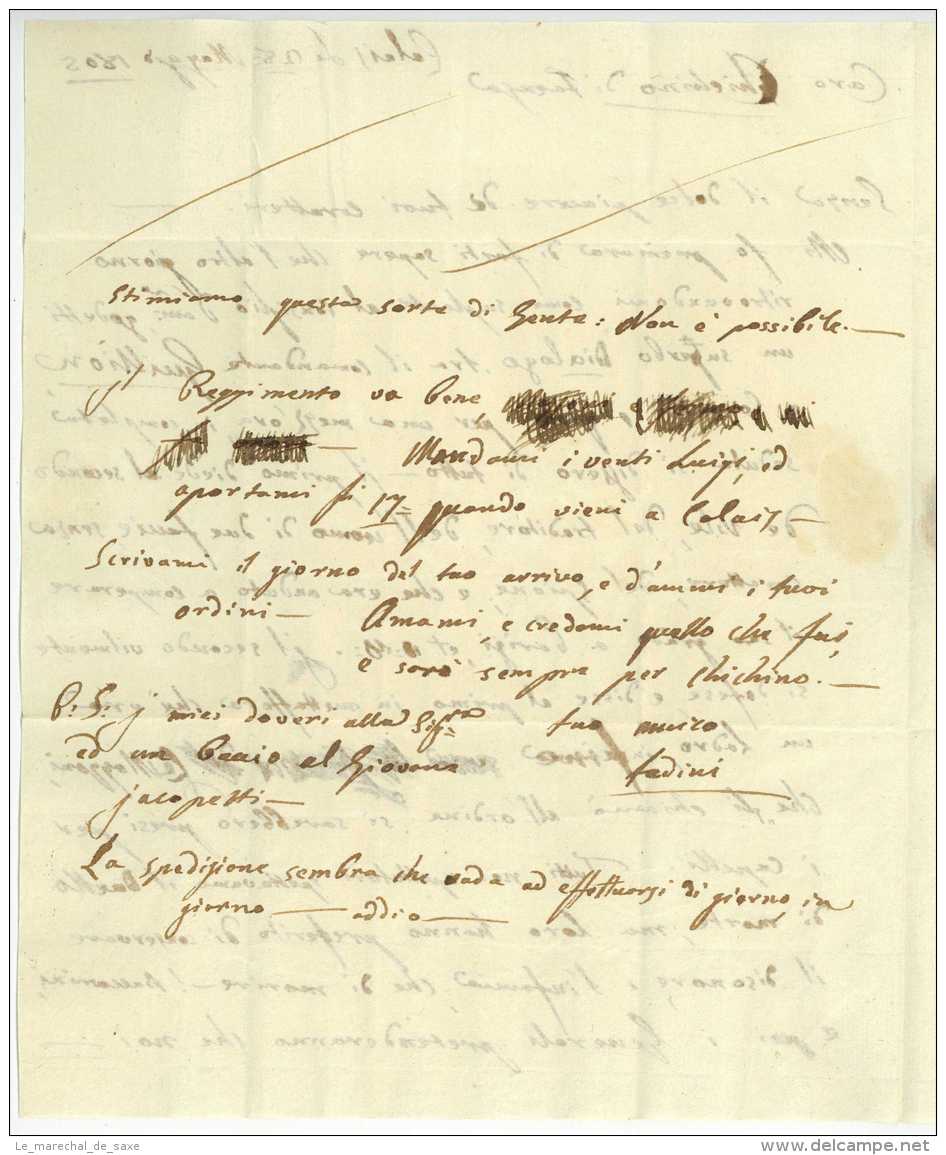 Stimiamo questa sorte di Gente: Non è possibile.—
Il Reggimento va bene
— Mandami i venti Luigi, ed
aportami fi 17= quando vieni a Calais—
Scrivami il giorno del tuo arrivo, e d'ammi i tuoi
ordini— Amami, e credami quello che fui,
e sarò sempre per Chichino.—
P: S: j miei doveri alla Sigra tuo amico
ed un bacio al Giovane fadini
jacopetti—
La spedizione sembra che vada ad effettuarsi di giorno in
giorno — addio —
Le_marechal_de_saxe
delcampe.net